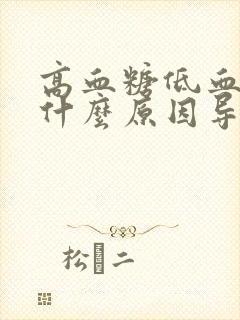 高血糖低血
什麼原因导
松 二